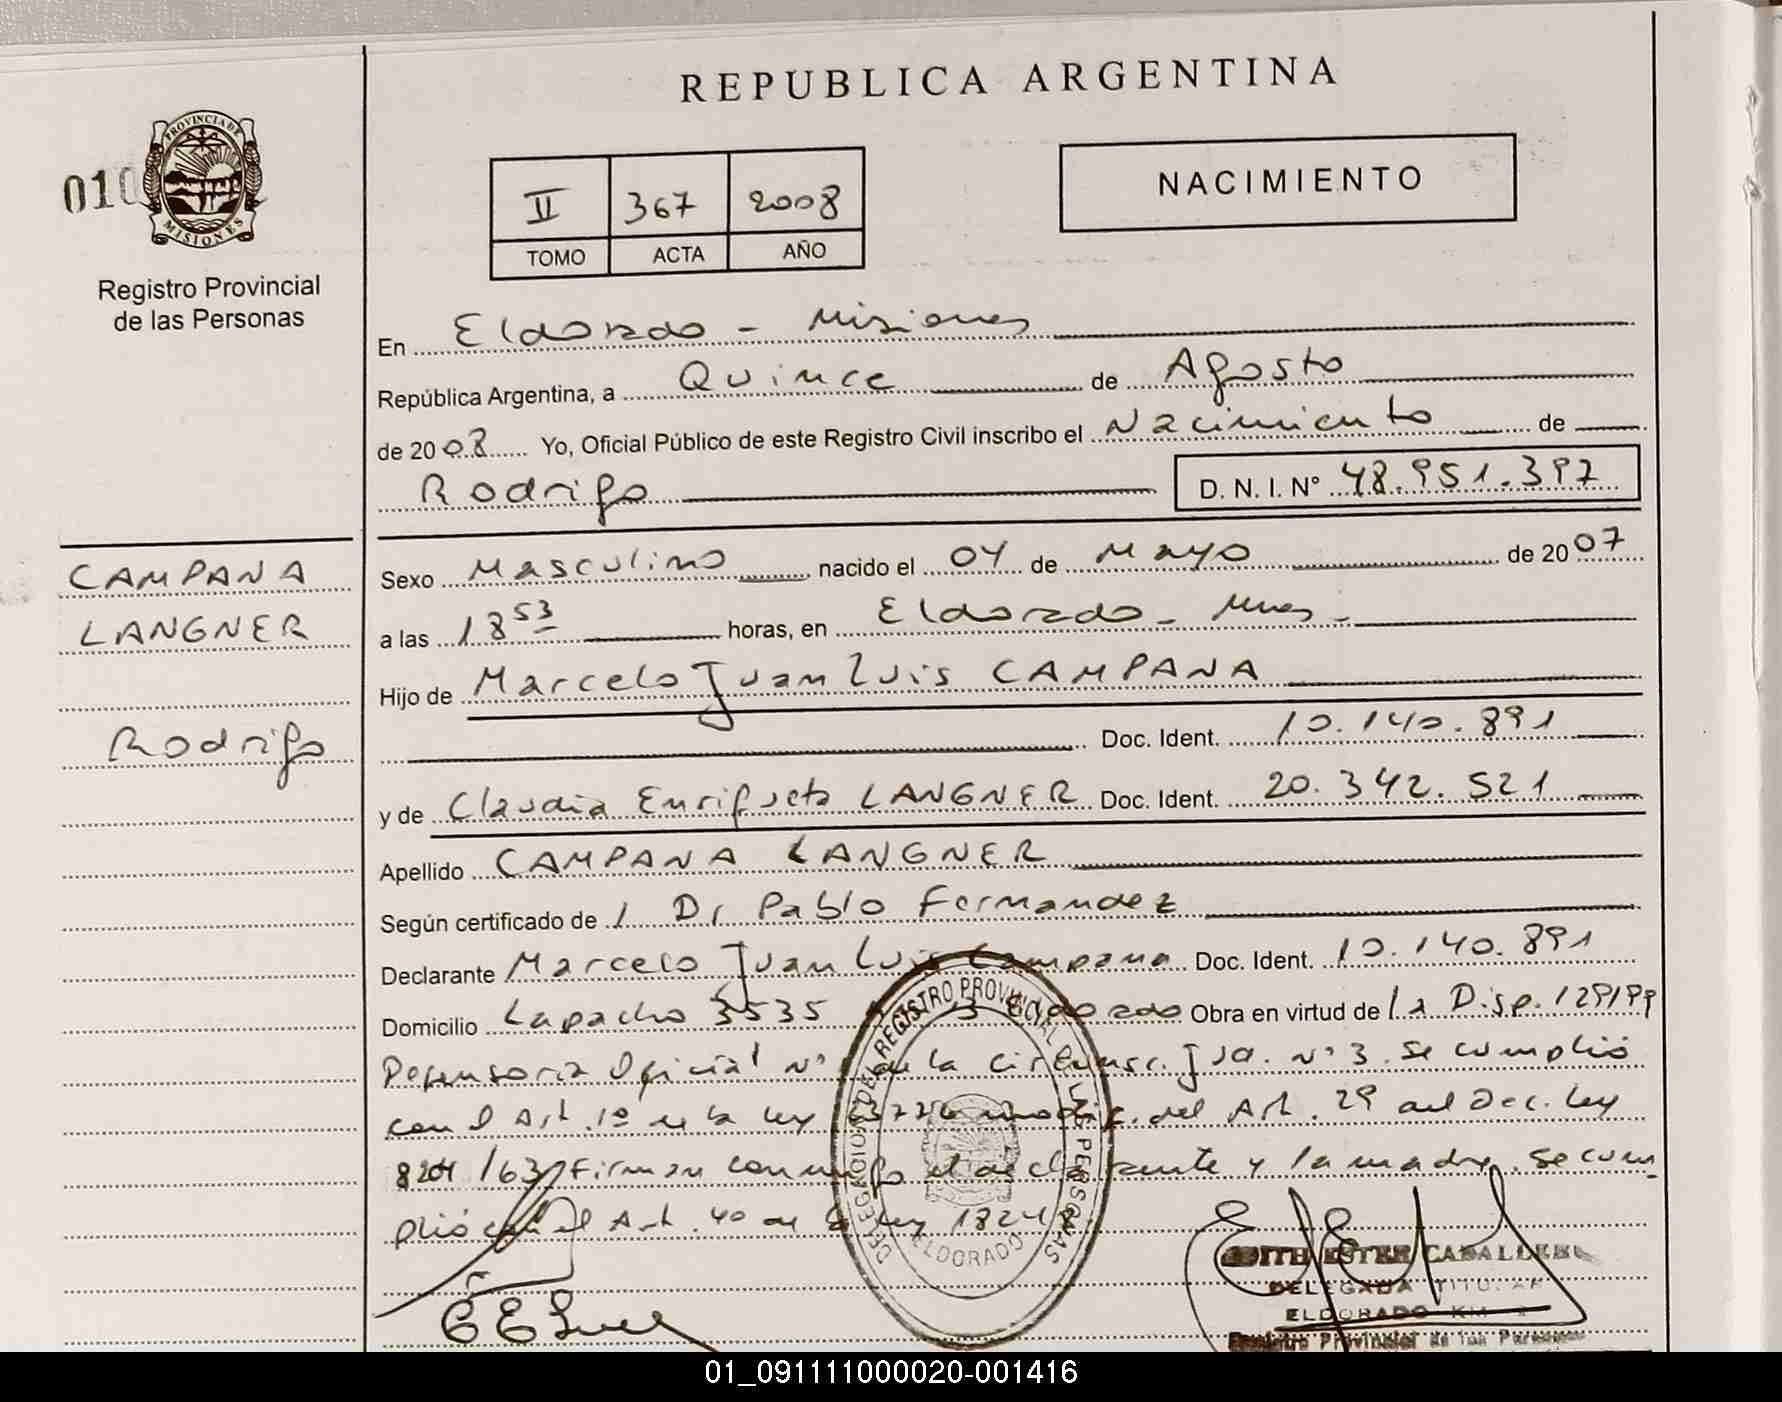 REPUBLICA ARGENTINA
PROVINCIA DE
MISIONES
010
Registro Provincial
de las Personas
II 367 2008
TOMO ACTA AÑO
NACIMIENTO
En Eldorado - Misiones
República Argentina, a Quince de Agosto
de 2008 Yo, Oficial Público de este Registro Civil inscribo el Nacimiento de
Rodrigo D. N. I. N° 48.951.397
CAMPANA
LANGNER
Rodrigo
Sexo Masculino nacido el 04 de Mayo de 2007
a las 18 53 horas, en Eldorado - Mnes -
Hijo de Marcelo Juan Luis CAMPANA
Doc. Ident. 10.140.891
y de Claudia Enriqueta LANGNER Doc. Ident. 20.342.521
Apellido CAMPANA LANGNER
Según certificado de / Dr Pablo Fernandez
Declarante Marcelo Juan Luis Campana Doc. Ident. 10.140.891
Domicilio Lapacho 3535 Eldorado Obra en virtud de la Disp. 129/99
Defensoria Oficial N° de la Circunsc. Jud. N° 3. Se cumplió
con el Art. 1º de la ley modif. del Art. 29 del Dec. Ley
8204/63 Firman conmigo el declarante y la madre. Se cum
plió con el Art. 40 de la ley 18248
DELEGACION DEL REGISTRO PROVINCIAL DE LAS PERSONAS
ELDORADO
EDITH ESTER CABALLERO
DELEGADA TITULAR
ELDORADO KM
Registro Provincial de las Personas
01_091111000020-001416